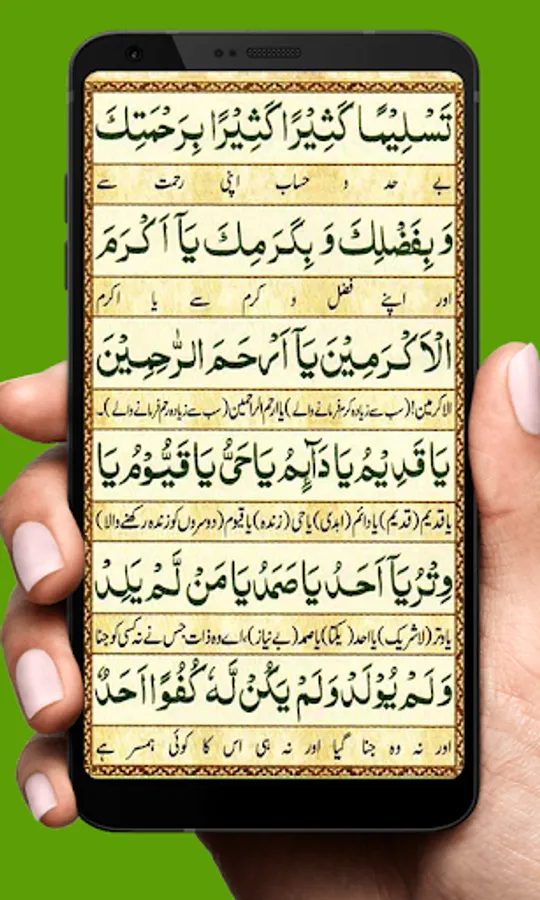 تَسْلِيْمًا كَثِيْرًا كَثِيْرًا بِرَحْمَتِكَ
بے حد و حساب اپنی رحمت سے
وَ بِفَضْلِكَ وَ بِكَرَمِكَ يَآ اَكْرَمَ
اور اپنے فضل و کرم سے یا اکرم
الْاَكْرَمِيْنَ يَآ اَرْحَمَ الرّٰحِمِيْنَ
الاکرمین! (سب سے زیادہ کرم فرمانے والے) یا ارحم الراحمین (سب سے زیادہ رحم فرمانے والے)۔
يَا قَدِيْمُ يَا دَآئِمُ يَا حَىُّ يَا قَيُّوْمُ يَا
یا قدیم (قدیم) یا دائم (ابدی) یا حی (زندہ) یا قیوم (دوسروں کو زندہ رکھنے والا)
وِتْرُ يَآ اَحَدُ يَا صَمَدُ يَا مَنْ لَّمْ يَلِدْ
یا وتر (لاشریک) یا احد (یکتا) یا صمد (بے نیاز)، اے وہ ذات جس نے نہ کسی کو جنا
وَلَمْ يُوْلَدْ وَلَمْ يَكُنْ لَّهٗ كُفُوًا اَحَدٌ
اور نہ وہ جنا گیا اور نہ ہی اس کا کوئی ہمسر ہے